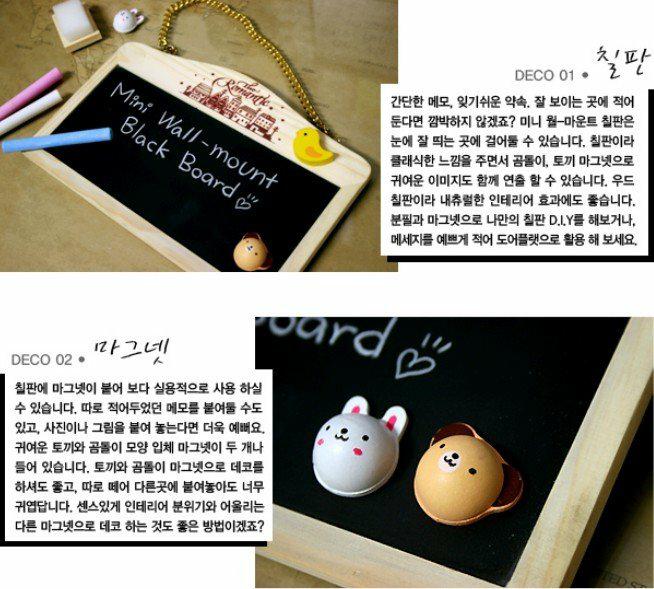 The
Romantic
Mini Wall-mount
Black Board
DECO 01 • 칠판
간단한 메모, 잊기쉬운 약속. 잘 보이는 곳에 적어
둔다면 깜박하지 않겠죠? 미니 월-마운트 칠판은
눈에 잘 띄는 곳에 걸어둘 수 있습니다. 칠판이라
클래식한 느낌을 주면서 곰돌이, 토끼 마그넷으로
귀여운 이미지도 함께 연출 할 수 있습니다. 우드
칠판이라 내츄럴한 인테리어 효과에도 좋습니다.
분필과 마그넷으로 나만의 칠판 D.I.Y를 해보거나,
메세지를 예쁘게 적어 도어플랫으로 활용 해 보세요.
DECO 02 • 마그넷
칠판에 마그넷이 붙어 보다 실용적으로 사용 하실
수 있습니다. 따로 적어두었던 메모를 붙여둘 수도
있고, 사진이나 그림을 붙여 놓는다면 더욱 예뻐요.
귀여운 토끼와 곰돌이 모양 입체 마그넷이 두 개나
들어 있습니다. 토끼와 곰돌이 마그넷으로 데코를
하셔도 좋고, 따로 떼어 다른곳에 붙여놓아도 너무
귀엽답니다. 센스있게 인테리어 분위기와 어울리는
다른 마그넷으로 데코 하는 것도 좋은 방법이겠죠?
board